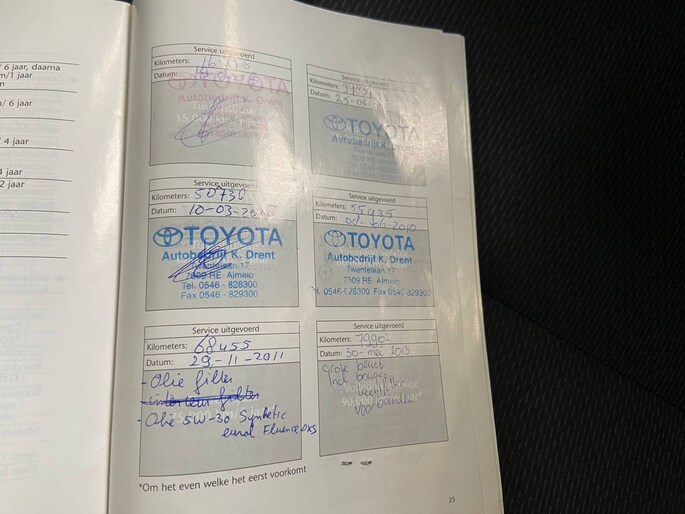 / 6 jaar, daarna
m/1 jaar
n
n/ 6 jaar
/ 4 jaar
4 jaar
2 jaar
Service uitgevoerd
Kilometers:
Datum:
TOYOTA
Autobedrijf K. Drent
15.000 km/
Service uitgevoerd
Kilometers:
Datum:
TOYOTA
Autobedrijf K. Drent
Service uitgevoerd
Kilometers: 50730
Datum: 10-03-
TOYOTA
Autobedrijf K. Drent
Twentelaan 17
7609 RE Almelo
Tel. 0546 - 828300
Fax 0546 - 829300
Service uitgevoerd
Kilometers: 55935
Datum: 2010
TOYOTA
Autobedrijf K. Drent
Twentelaan 17
7609 RE Almelo
Tel. 0546-828300 Fax 0546-829300
Service uitgevoerd
Kilometers: 68455
Datum: 29-11-2011
- Olie filter
- Interieur filter
- Olie 5W-30 Synthetic
eurol Fluence DXS
Service uitgevoerd
Kilometers:
Datum: 30-mei 2013
Grote beurt
Incl. bougies
voorbanden
*Om het even welke het eerst voorkomt
25